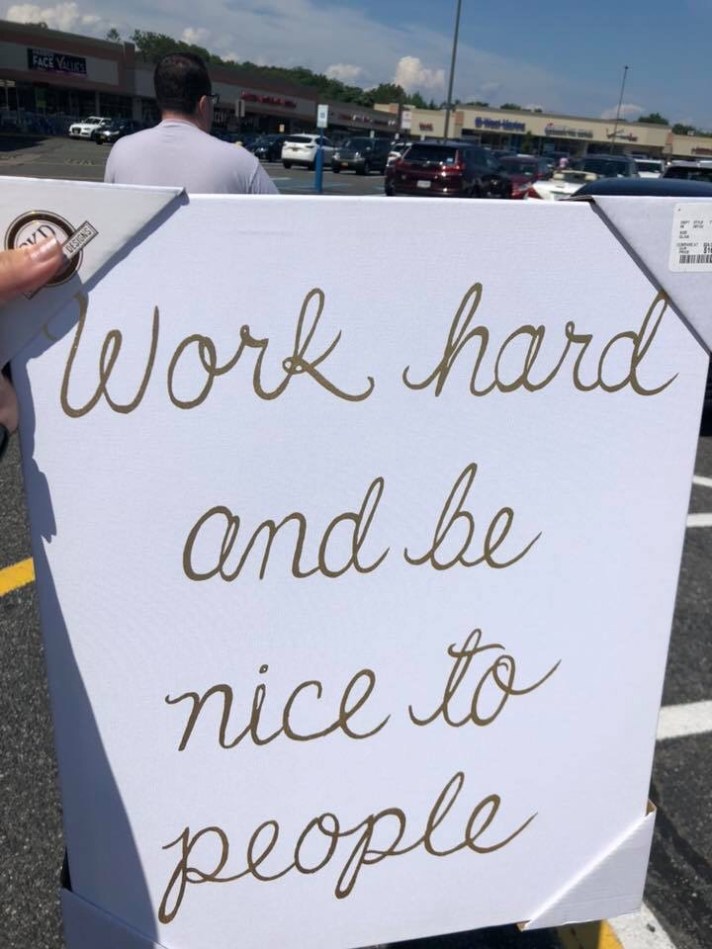 FACE VALUES
DESIGNS
Work hard
and be
nice to
people